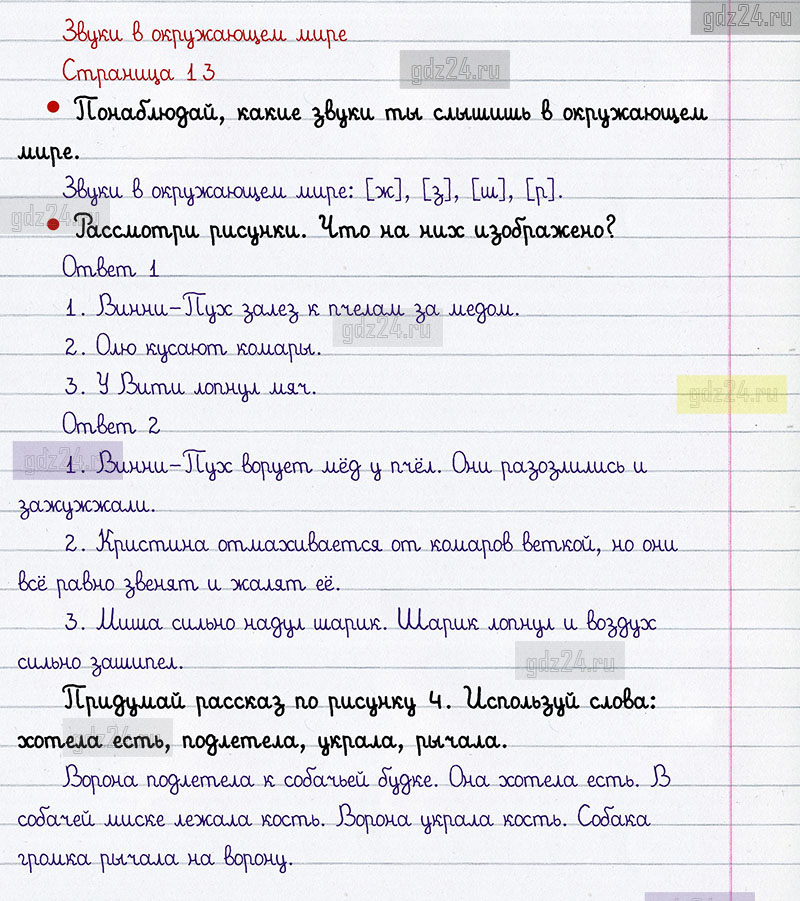 gdz24.ru
Звуки в окружающем мире
Страница 13
gdz24.ru
• Понаблюдай, какие звуки ты слышишь в окружающем
мире.
Звуки в окружающем мире: [ж], [з], [ш], [р].
gdz24.ru
• Рассмотри рисунки. Что на них изображено?
Ответ 1
1. Винни-Пух залез к пчелам за медом.
gdz24.ru
2. Олю кусают комары.
3. У Вити лопнул мяч.
gdz24.ru
Ответ 2
gdz24.ru
1. Винни-Пух ворует мёд у пчёл. Они разозлились и
зажужжали.
2. Кристина отмахивается от комаров веткой, но они
всё равно звенят и жалят её.
3. Миша сильно надул шарик. Шарик лопнул и воздух
сильно зашипел.
gdz24.ru
Придумай рассказ по рисунку 4. Используй слова:
хотела есть, подлетела, украла, рычала.
gdz24.ru
Ворона подлетела к собачьей будке. Она хотела есть. В
собачей миске лежала кость. Ворона украла кость. Собака
громка рычала на ворону.